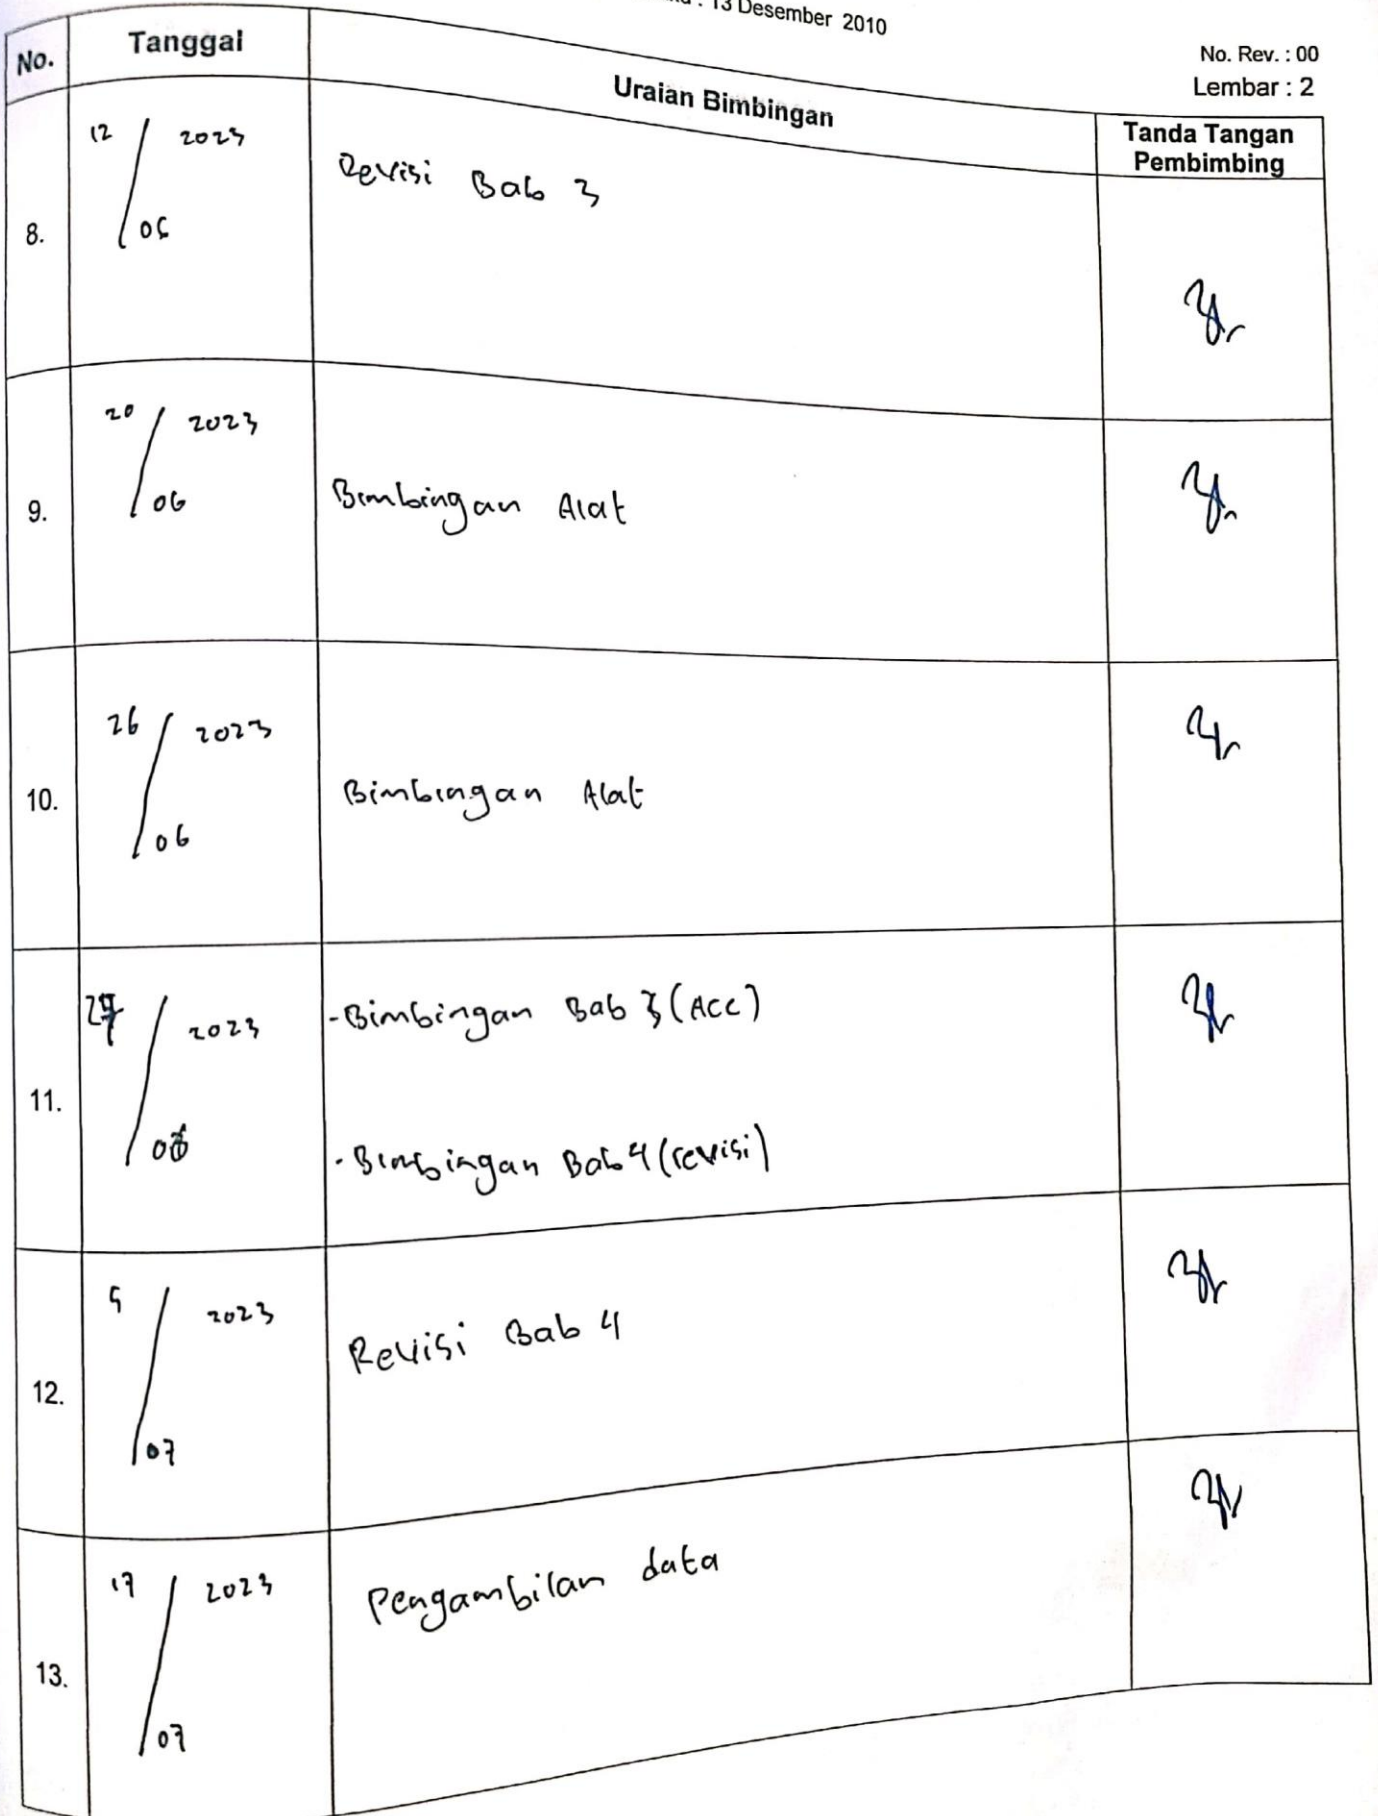 : 13 Desember 2010
No. Rev. : 00
Lembar : 2
No.
Tanggal
Uraian Bimbingan
Tanda Tangan
Pembimbing
8.
12 / 2023
06
Revisi Bab 3
9.
20 / 2023
06
Bimbingan Alat
10.
26 / 2023
06
Bimbingan Alat
11.
2023
-Bimbingan Bab 3 (Acc)
-Bimbingan Bab 4 (revisi)
12.
5 / 2023
07
Revisi Bab 4
13.
17 / 2023
07
Pengambilan data